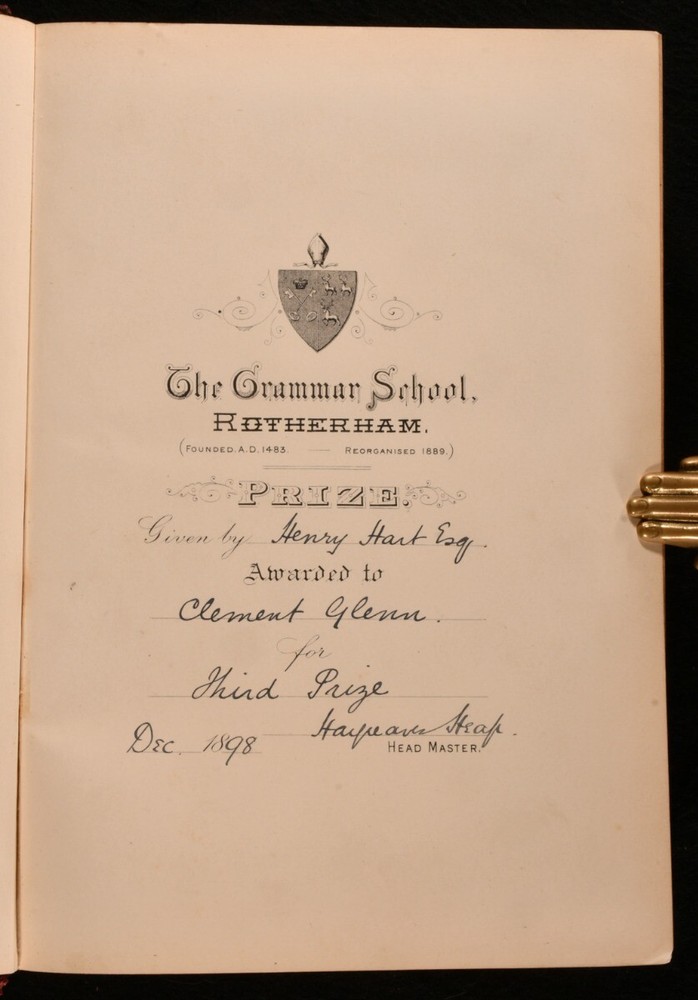 The Grammar School,
ROTHERHAM.
(FOUNDED. A.D. 1483. — REORGANISED 1889.)
PRIZE.
Given by Henry Hart Esq.
Awarded to
Clement Glenn.
for
Third Prize
Dec. 1898 Hargreaves Heap.
HEAD MASTER.